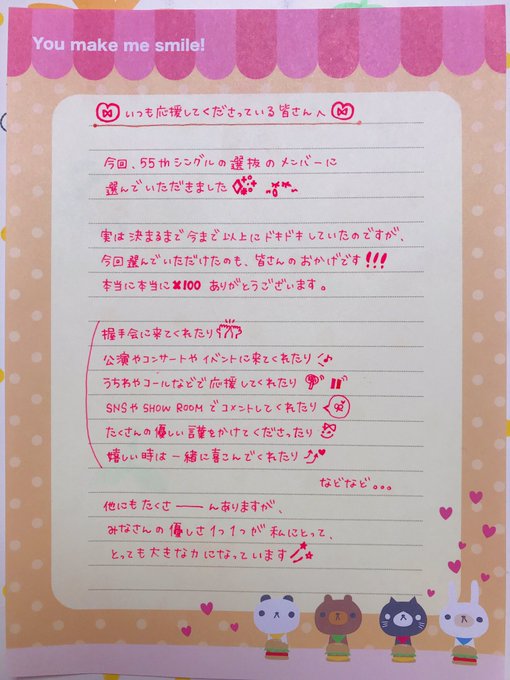 You make me smile!
いつも応援してくださっている皆さんへ
今回、55thシングルの選抜のメンバーに
選んでいただきました
実は決まるまで今まで以上にドキドキしていたのですが、
今回選んでいただけたのも、皆さんのおかげです!!!
本当に本当に×100 ありがとうございます。
握手会に来てくれたり
公演やコンサートやイベントに来てくれたり
うちわやコールなどで応援してくれたり
SNSやSHOWROOMでコメントしてくれたり
たくさんの優しい言葉をかけてくださったり
嬉しい時は一緒に喜こんでくれたり
などなど。。。
他にもたくさーーんありますが、
みなさんの優しさ1つ1つが私にとって、
とっても大きな力になっています